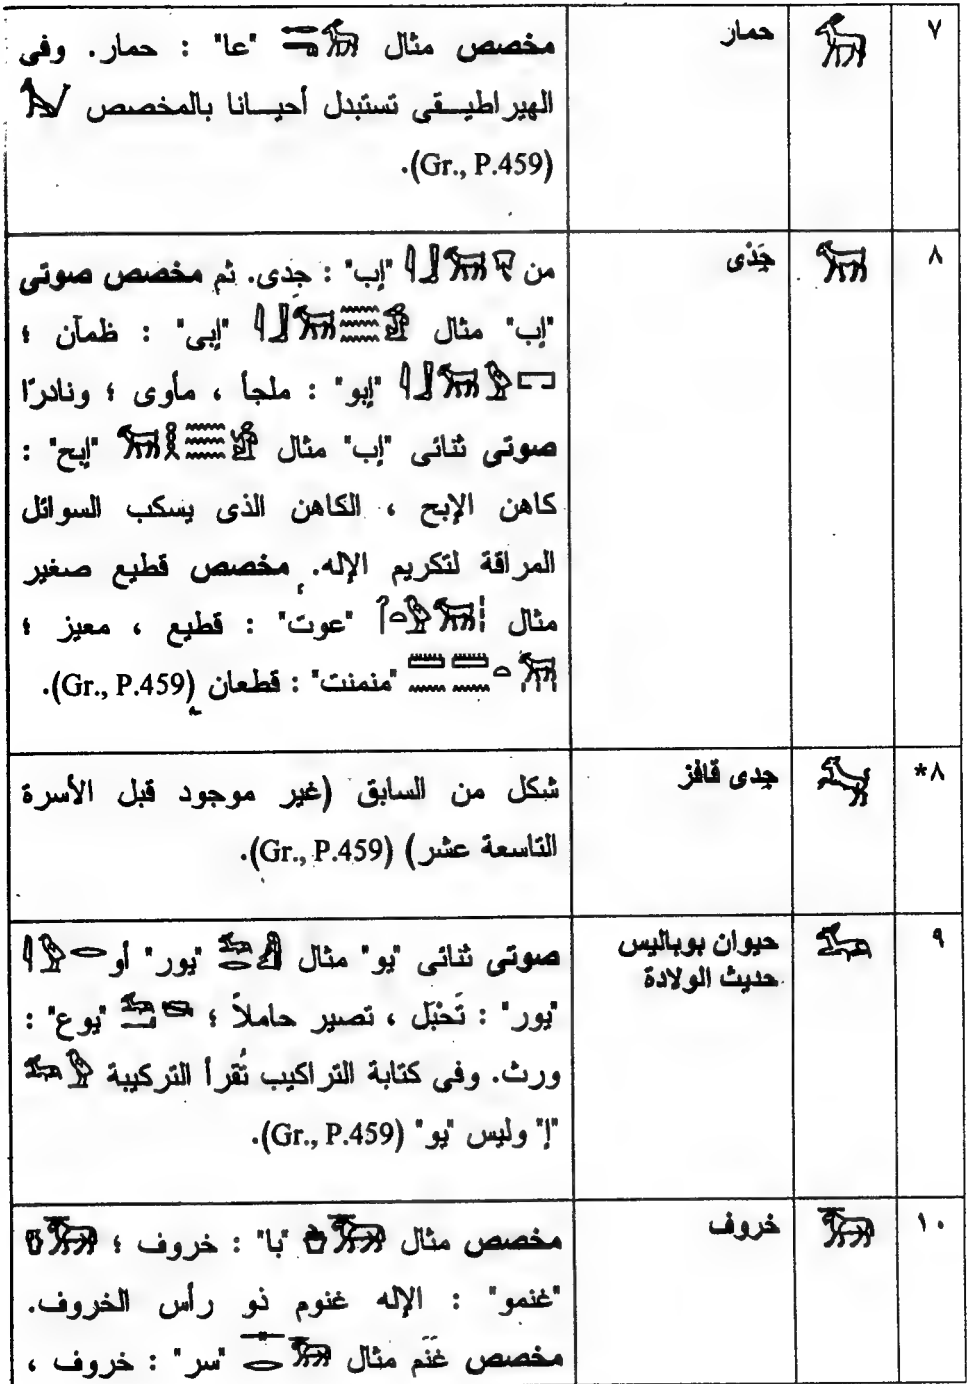 ٧ حمار مخصص مثال "عا" : حمار. وفى
الهيراطيـــقى تستبدل أحيـــانا بالمخصص
(Gr., P.459).
٨ جَدْى من "إب" : جدى. ثم مخصص صوتى
"إب" مثال "إبى" : ظمآن ؛
"إبو" : ملجأ ، مأوى ؛ ونادرًا
صوتى ثنائى "إب" مثال "إبح" :
كاهن الإبح ، الكاهن الذى يسكب السوائل
المراقة لتكريم الإله. مخصص قطيع صغير
مثال "عوت" : قطيع ، معيز ؛
"منمنت" : قطعان (Gr., P.459).
٨* جدى قافز شكل من السابق (غير موجود قبل الأسرة
التاسعة عشر) (Gr., P.459).
٩ حيوان بوباليس صوتى ثنائى "يو" مثال "يور" أو
حديث الولادة "يور" : تَحْبَل ، تصير حاملاً ؛ "يوع" :
ورث. وفى كتابة التراكيب تُقرأ التركيبة
"إ" وليس "يو" (Gr., P.459).
١٠ خروف مخصص مثال "با" : خروف ؛
"غنمو" : الإله غنوم ذو رأس الخروف.
مخصص غَنَم مثال "سر" : خروف ،